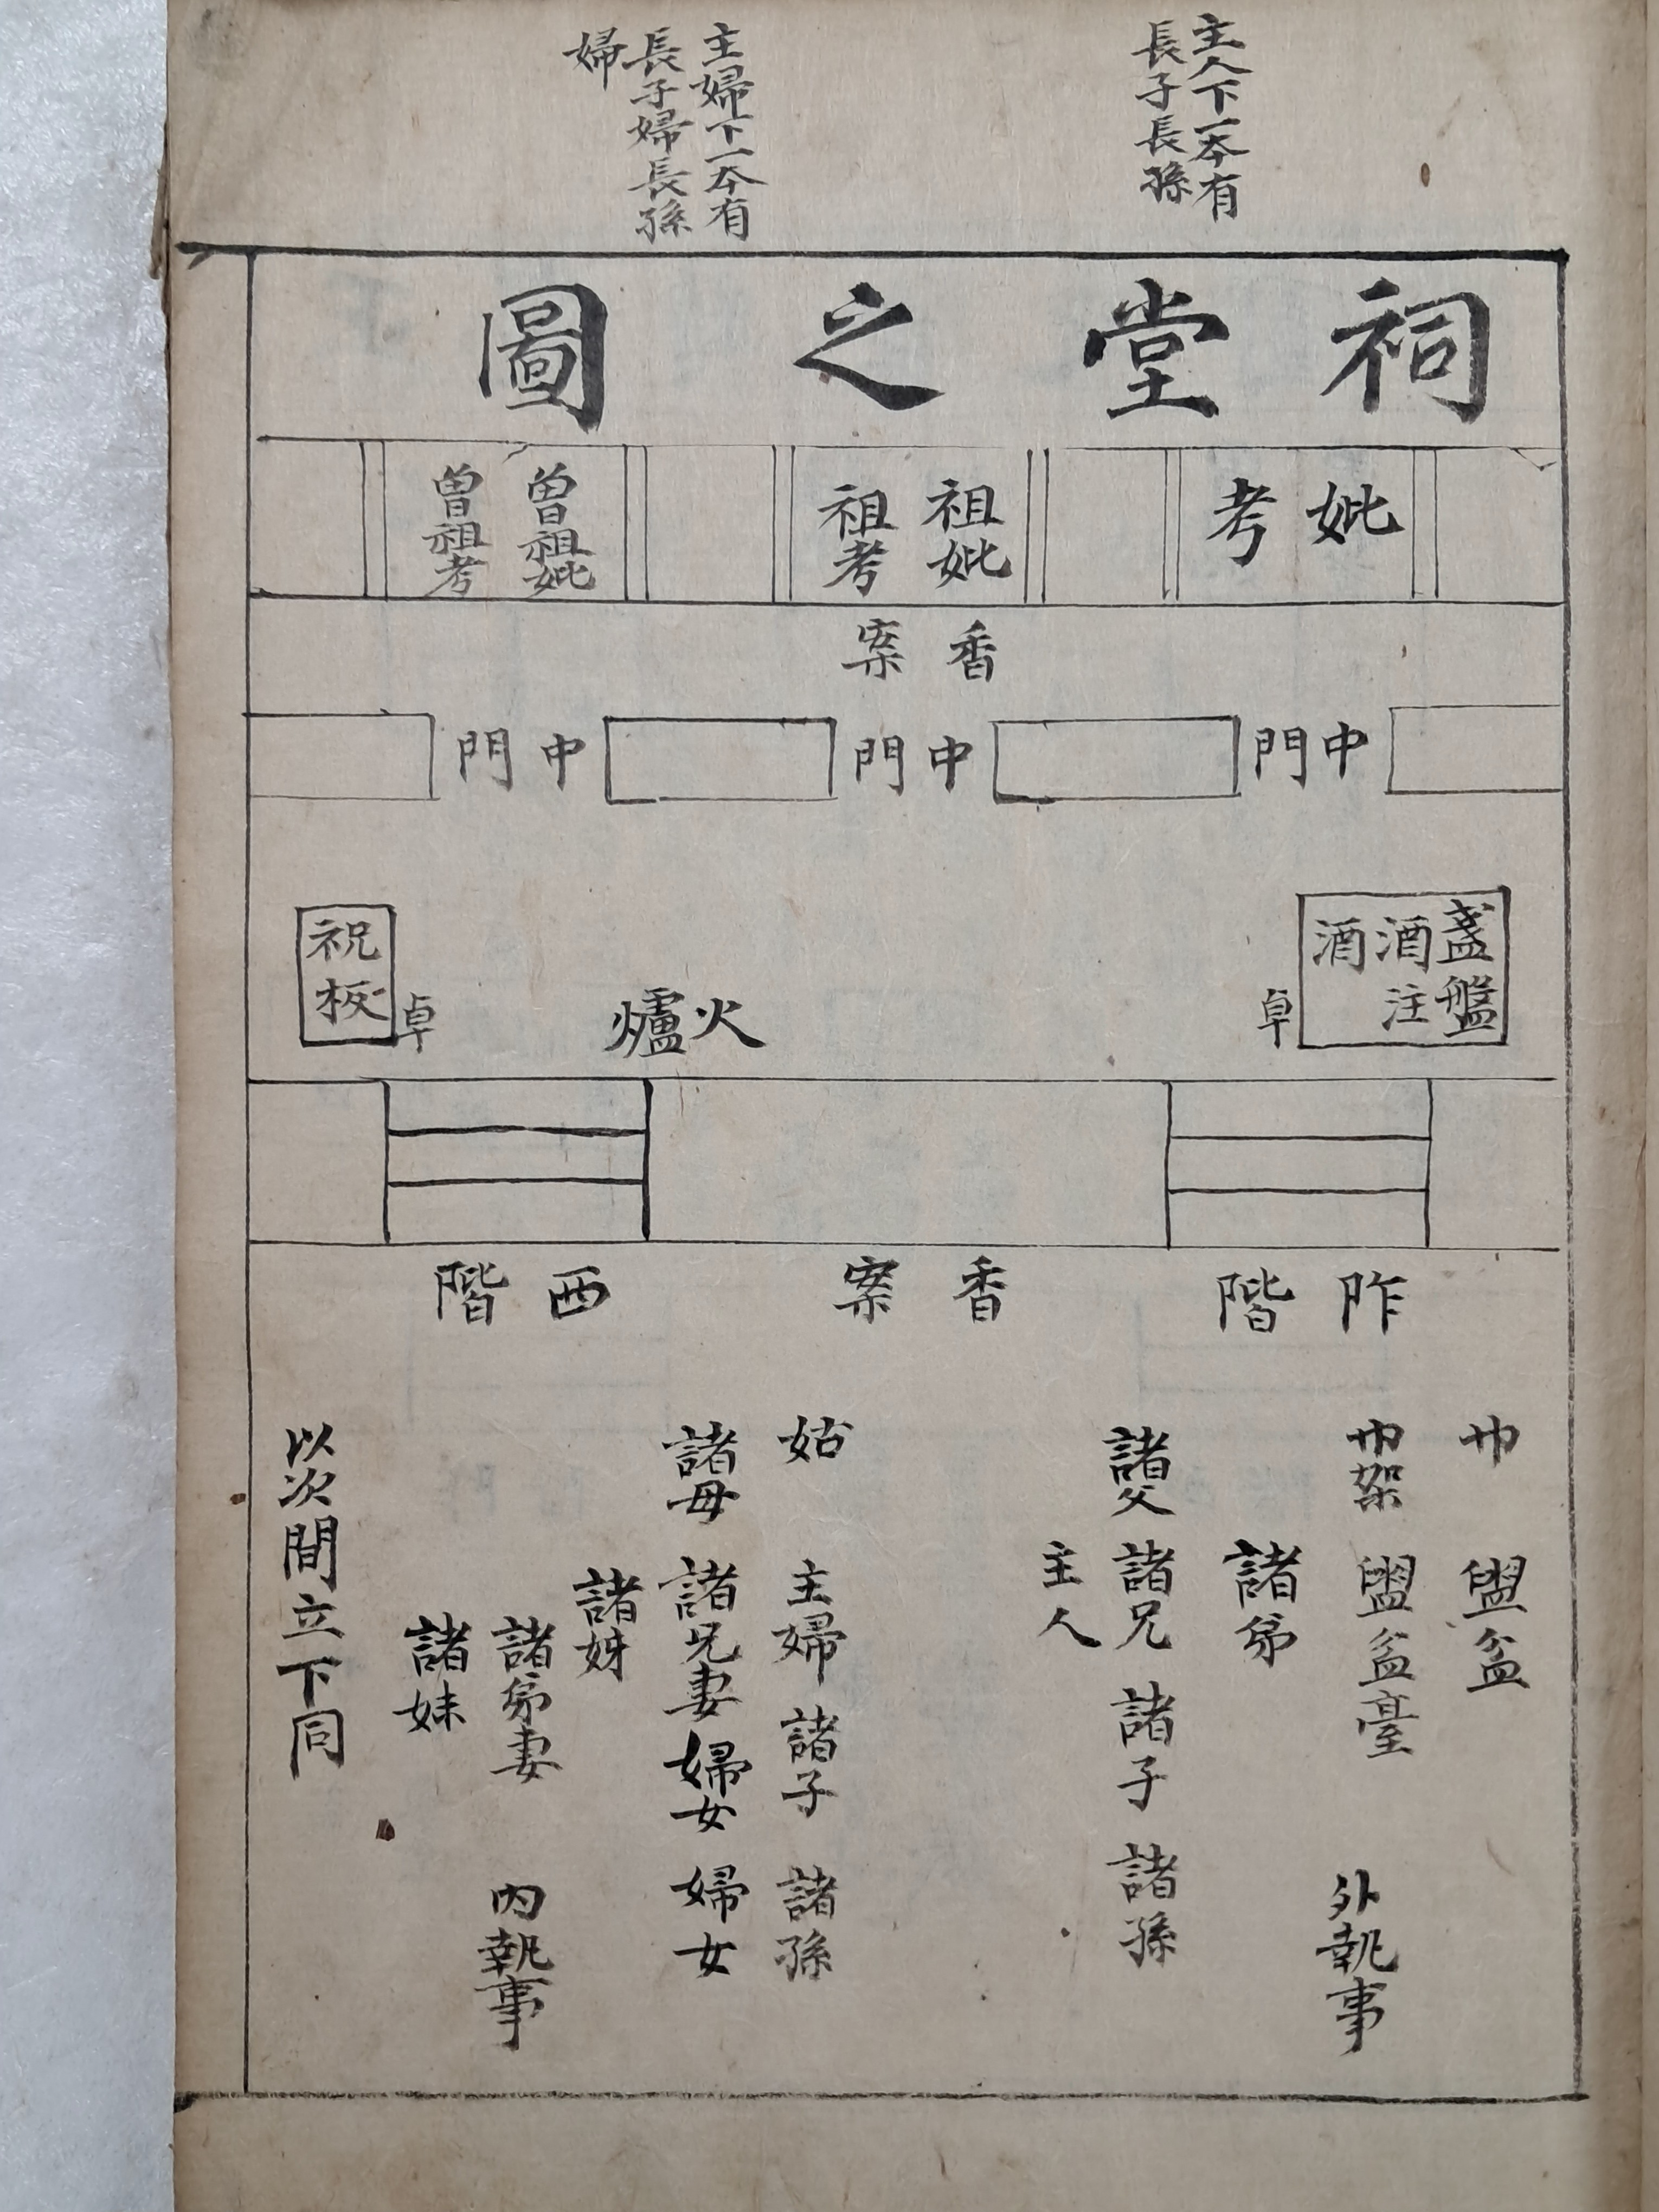 主人下一本有
長子長孫
主婦下一本有
長子婦長孫
婦
祠堂之圖
妣
考
祖妣
祖考
曾祖妣
曾祖考
香案
中門
中門
中門
盞盤
酒注
酒
卓
火爐
祝板
卓
阼階
香案
西階
帨 盥盆
帨架 盥盆臺
外執事
諸弟
諸父 諸兄 諸子 諸孫
主人
姑 主婦 諸子 諸孫
諸母 諸兄妻 婦女 婦女
諸姊
諸弟妻 內執事
諸妹
以次間立下同